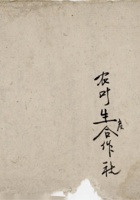 农叶生产合作社